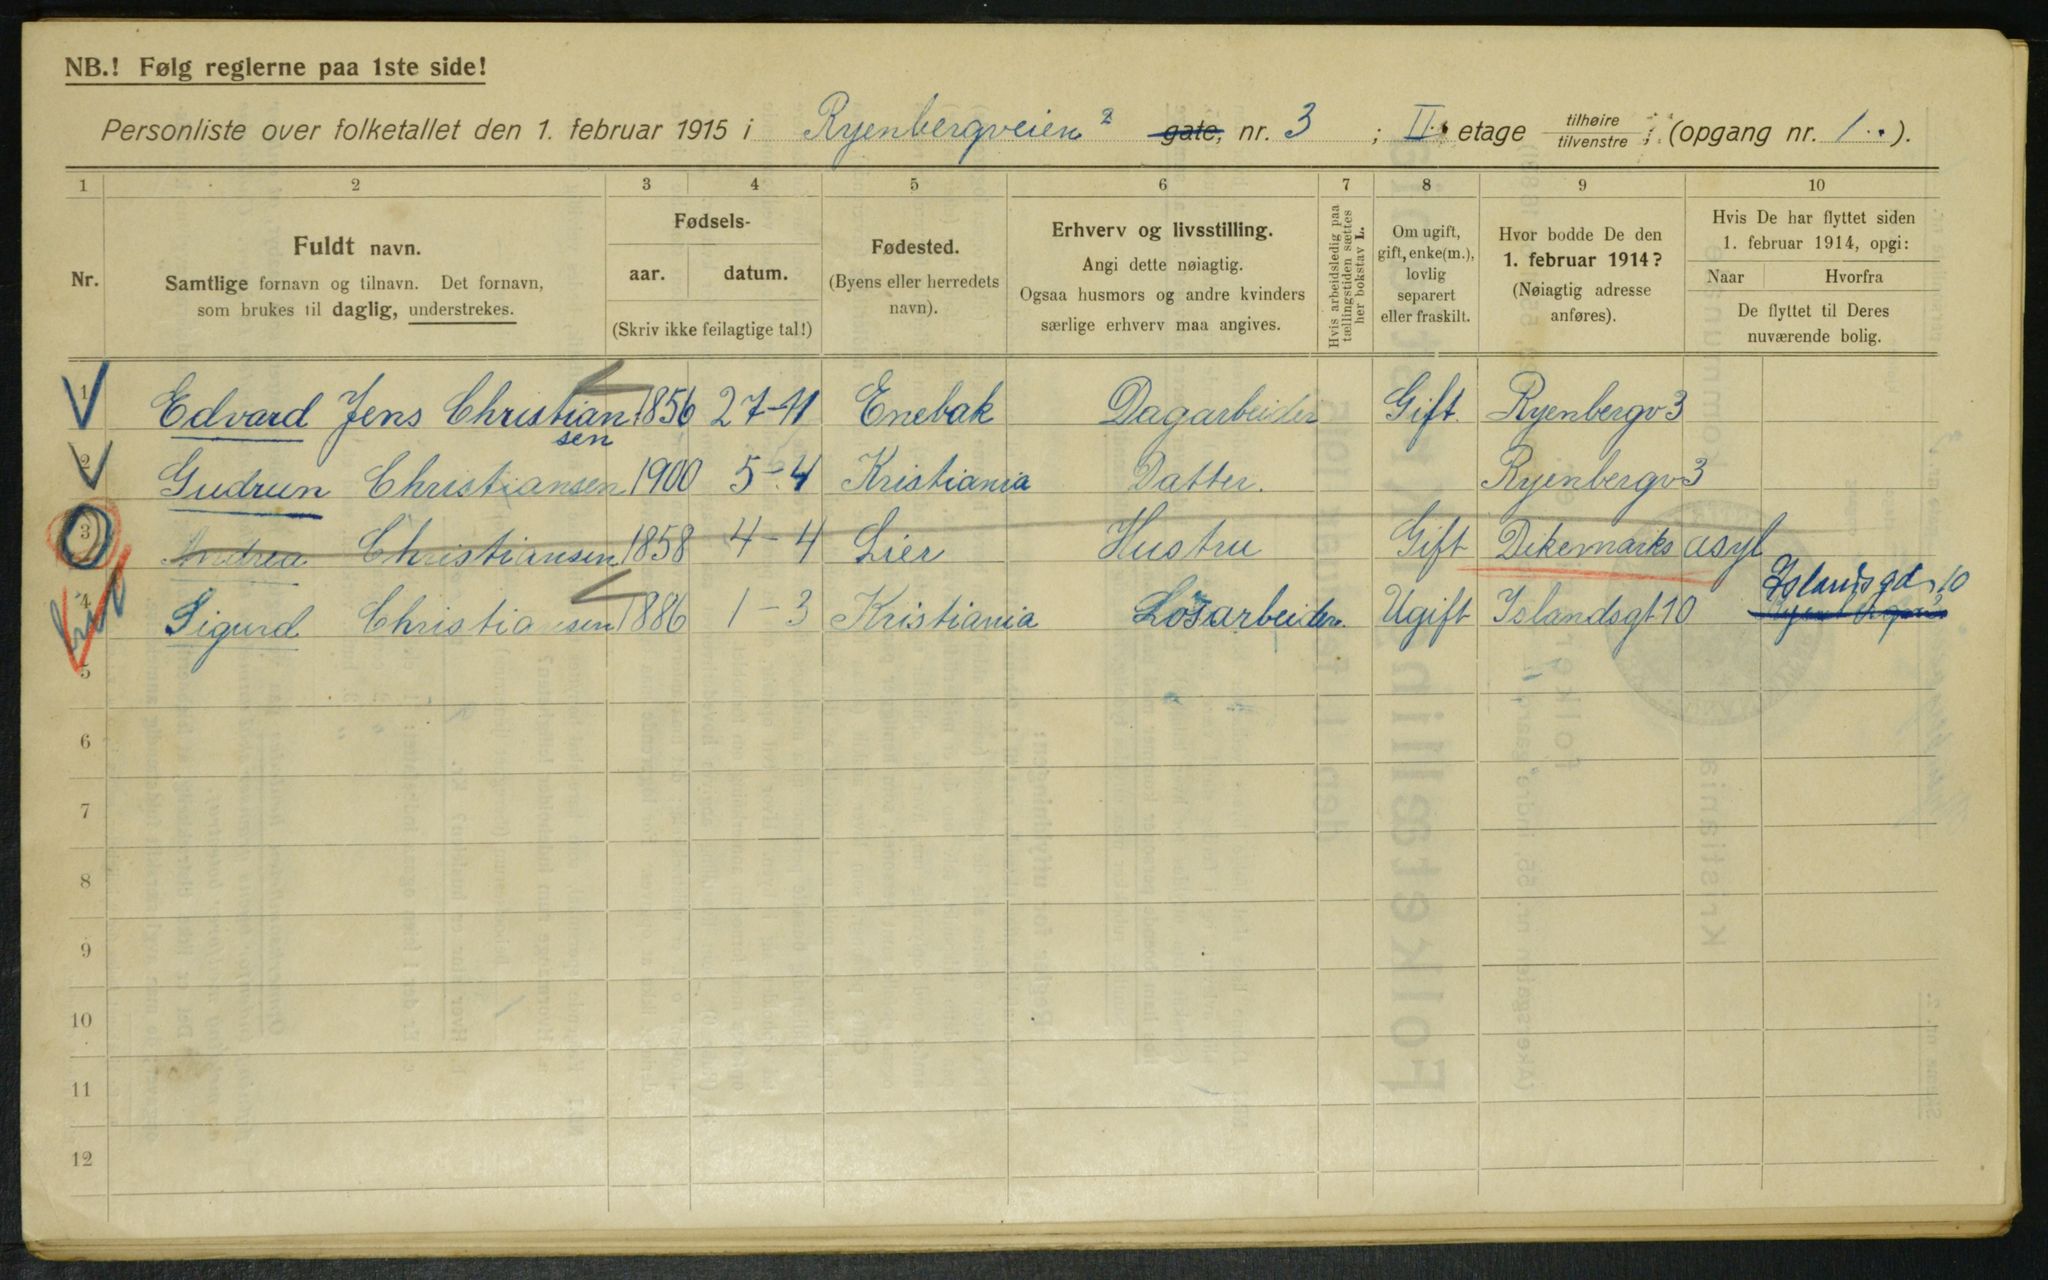 NB.! Følg reglerne paa 1ste side!
Personliste over folketallet den 1. februar 1915 i Ryenbergveien 2 gate, nr. 3 ; II etage tilhøire / tilvenstre ; (opgang nr. 1 ).
1 2 3 4 5 6 7 8 9 10
Nr.
Fuldt navn.
Samtlige fornavn og tilnavn. Det fornavn,
som brukes til daglig, understrekes.
Fødsels-
aar. datum.
(Skriv ikke feilagtige tal!)
Fødested.
(Byens eller herredets
navn).
Erhverv og livsstilling.
Angi dette nøiagtig.
Ogsaa husmors og andre kvinders
særlige erhverv maa angives.
Hvis arbeidsledig paa
tællingstiden sættes
her bokstav L.
Om ugift,
gift, enke(m.),
lovlig
separert
eller fraskilt.
Hvor bodde De den
1. februar 1914?
(Nøiagtig adresse
anføres).
Hvis De har flyttet siden
1. februar 1914, opgi:
Naar Hvorfra
De flyttet til Deres
nuværende bolig.
1 Edvard Jens Christian 1856 27-11 Enebak Dagarbeider Gift. Ryenbergv 3
sen
2 Gudrun Christiansen 1900 5-4 Kristiania Datter. Ryenbergv 3
3 Andrea Christiansen 1858 4-4 Lier Hustru Gift Dikemarks asyl
Islandsgd 10
4 Sigurd Christiansen 1886 1-3 Kristiania Løsarbeider. Ugift Islandsgt 10
5
6
7
8
9
10
11
12